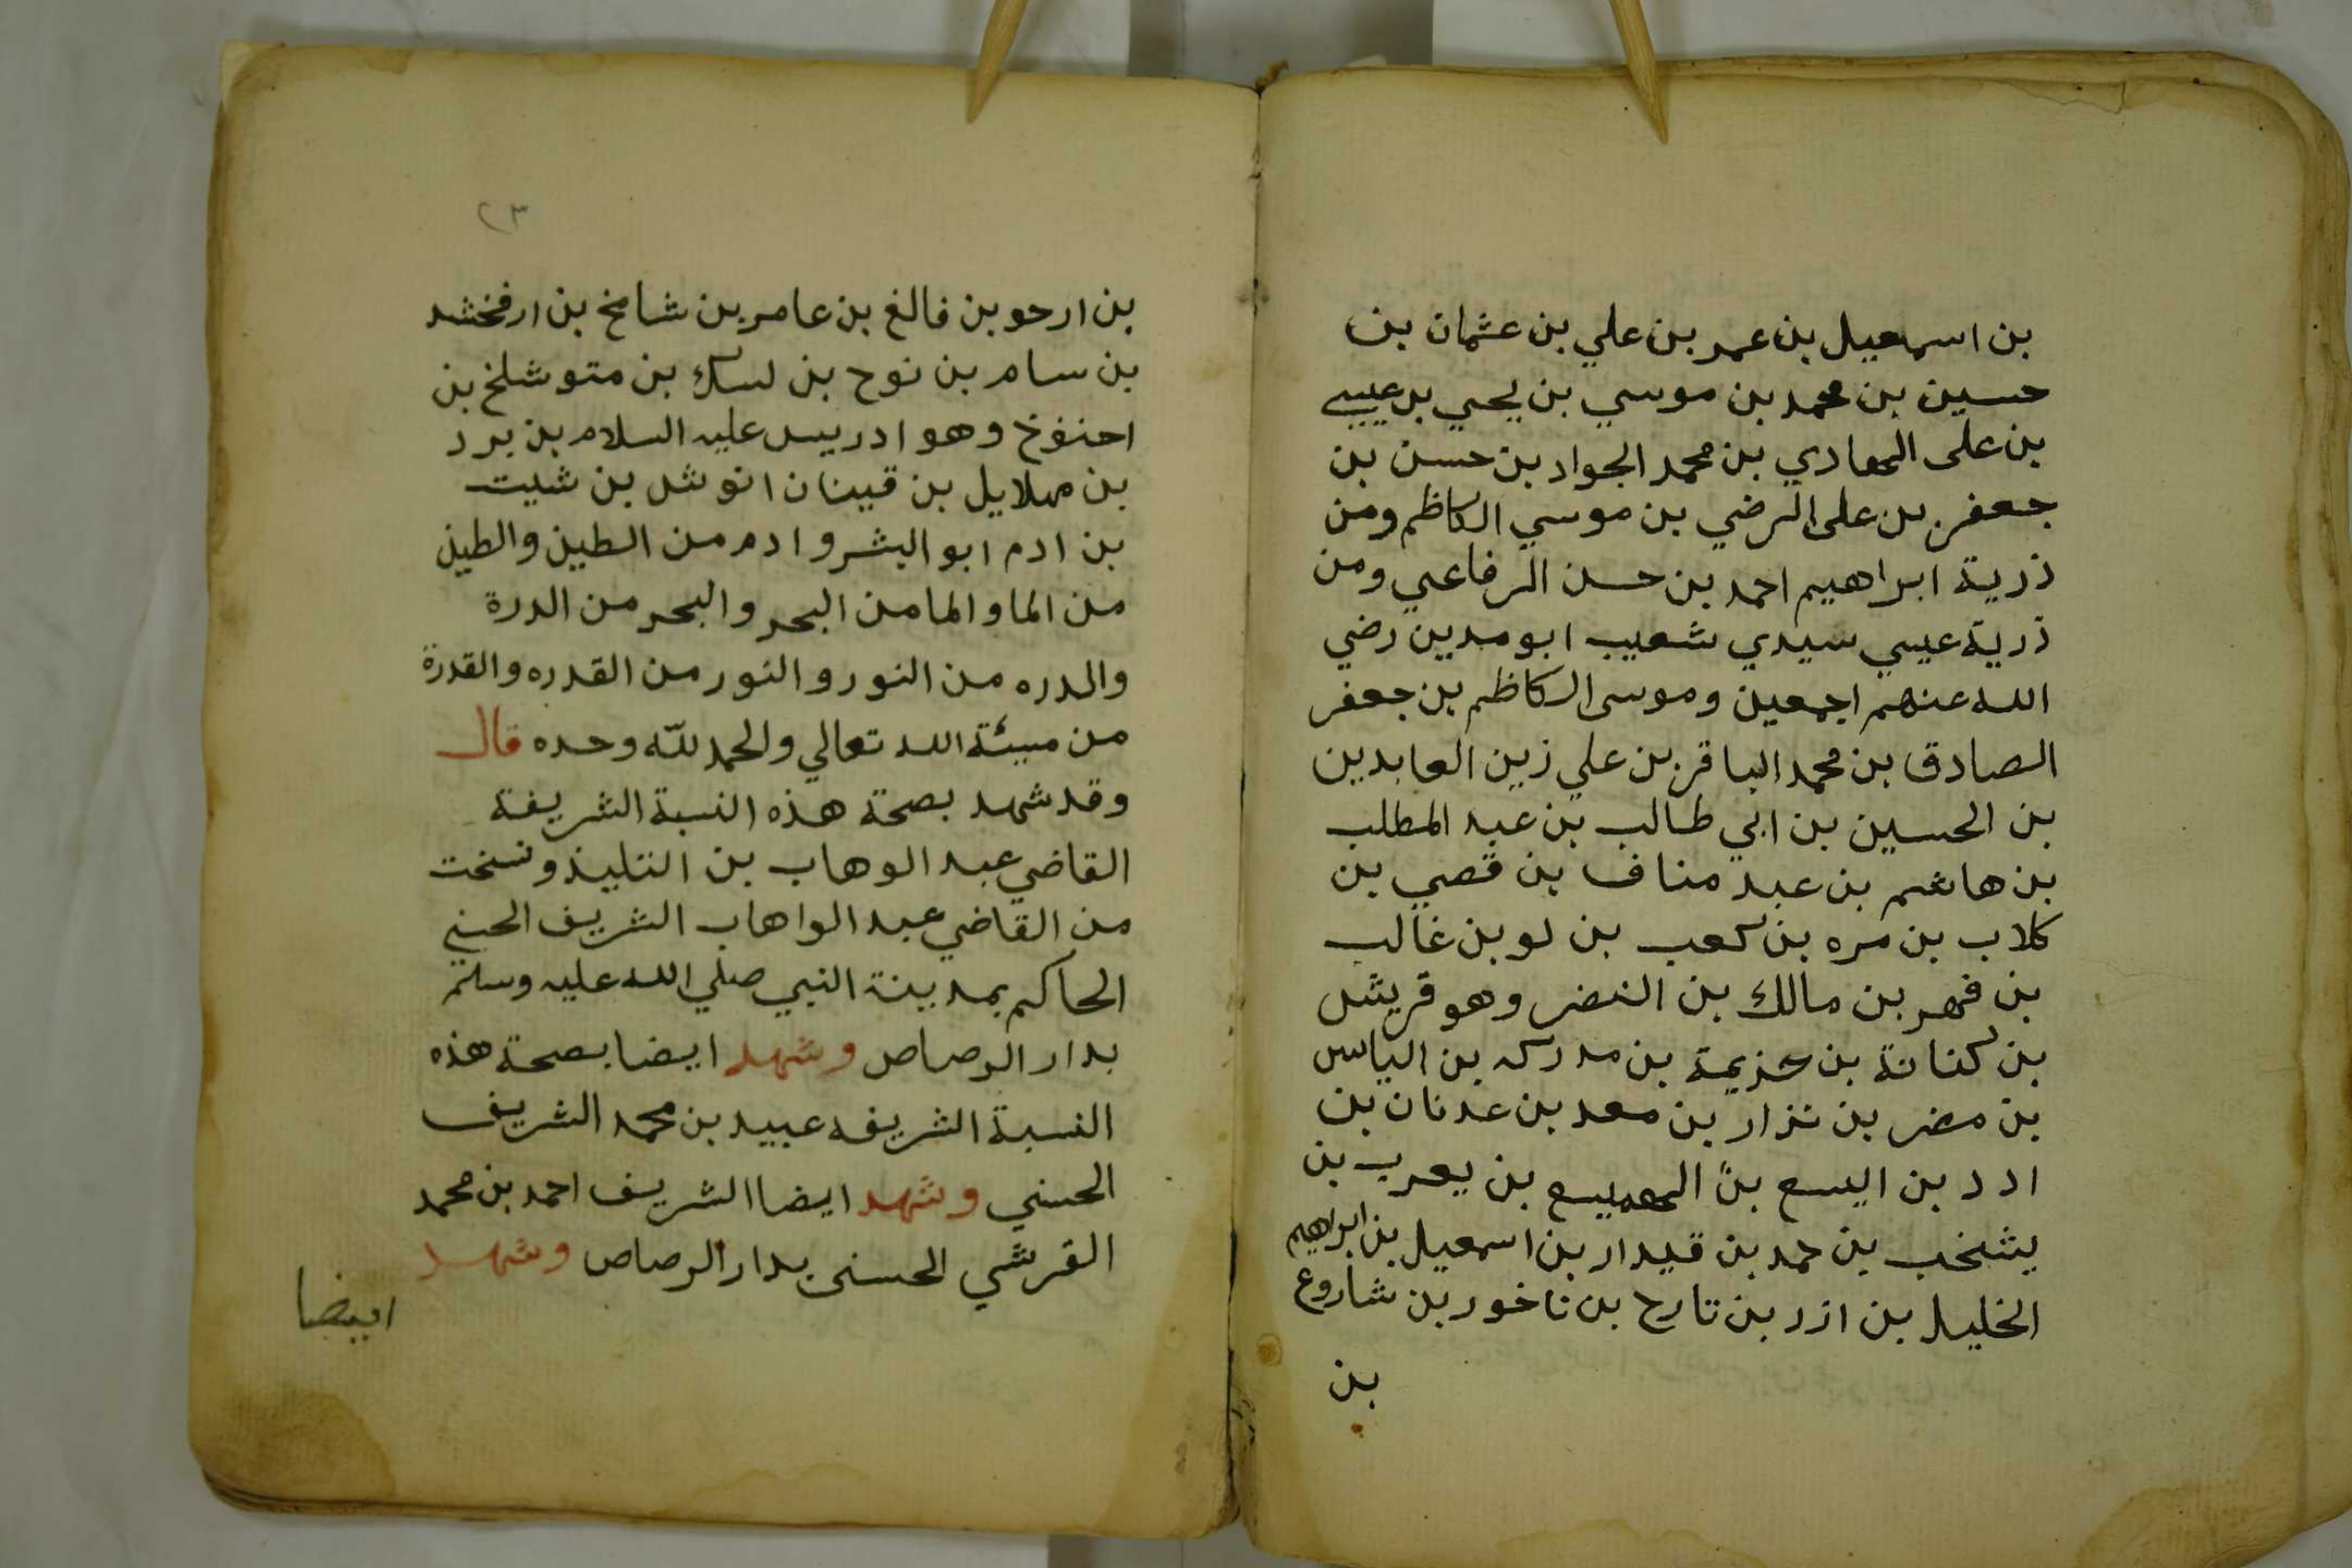 بن اسمعيل بن عمر بن علي بن عثمان بن
حسين بن محمد بن موسي بن يحيي بن عيسي
بن على الهادي بن محمد الجواد بن حسن بن
جعفر بن على الرضي بن موسي الكاظم ومن
ذرية ابراهيم احمد بن حسن الرفاعي ومن
ذرية عيسي سيدي شعيب ابو مدين رضي
الله عنهم اجمعين وموسى الكاظم بن جعفر
الصادق بن محمد الباقر بن علي زين العابدين
بن الحسين بن ابي طالب بن عبد المطلب
بن هاشم بن عبد مناف بن قصي بن
كلاب بن مره بن كعب بن لو بن غالب
بن فهر بن مالك بن النضر وهو قريش
بن كنانة بن خزيمة بن مدركه بن الياس
بن مضر بن نزار بن معد بن عدنان بن
ادد بن اليسع بن الهميسع بن يعرب بن
يشخب بن حمد بن قيدار بن اسمعيل بن ابراهيم
الخليل بن ازر بن تارح بن ناخور بن شاروع
بن
٢٣
بن ارحو بن فالغ بن عامر بن شامخ بن ارفخشد
بن سام بن نوح بن لمك بن متوشلخ بن
احنفوخ وهو ادريس عليه السلام بن برد
بن مهلاييل بن قينان انوش بن شيت
بن ادم ابو البشر وادم من الطين والطين
من الما والما من البحر والبحر من الدرة
والدره من النور والنور من القدره والقدرة
من مييئة الله تعالي والحمد لله وحده قال
وقد شهد بصحة هذه النسبة الشريفة
القاضي عبد الوهاب بن التلبيذ ونسخت
من القاضي عبد الواهاب الشريف الحسني
الحاكم بمدينة النبي صلي الله عليه وسلم
بدار الرصاص وشهد ايضا بصحة هذه
النسبة الشريفه عبيد بن محمد الشريف
الحسني وشهد ايضا الشريف احمد بن محمد
القرشي الحسنى بدار الرصاص وشهد
ايضا